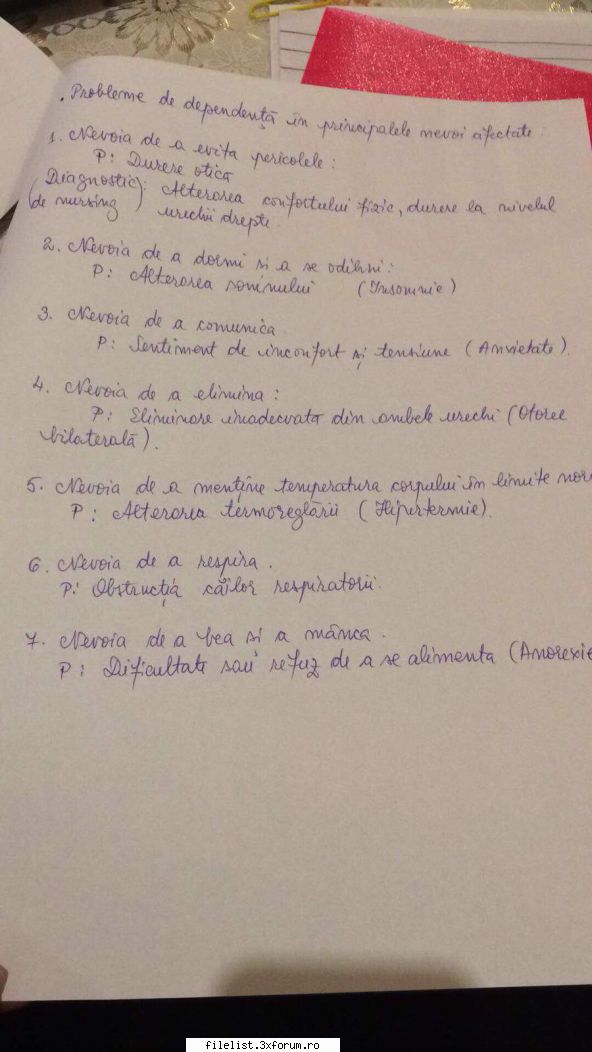 . Probleme de dependență în principalele nevoi afectate:
1. Nevoia de a evita pericolele:
P: Durere otica
(Diagnostic): Alterarea confortului fizic, durere la nivelul
(de nursing) urechii drepte.
2. Nevoia de a dormi și a se odihni:
P: Alterarea somnului (Insomnie)
3. Nevoia de a comunica.
P: Sentiment de inconfort și tensiune (Anxietate).
4. Nevoia de a elimina:
P: Eliminare inadecvata din ambele urechi (Otoree
bilaterală).
5. Nevoia de a menține temperatura corpului în limite nor
P: Alterarea termoreglării (Hipertermie).
6. Nevoia de a respira.
P: Obstrucția căilor respiratorii.
7. Nevoia de a bea si a mânca.
P: Dificultate sau refuz de a se alimenta (Anorexie
filelist.3xforum.ro